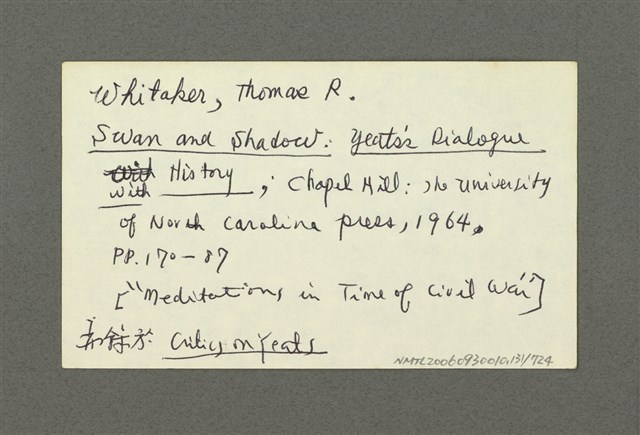 Whitaker, Thomas R.
Swan and Shadow: Yeats's Dialogue
with History, Chapel Hill: The University
of North Carolina Press, 1964.
PP. 170-87
["Meditations in Time of Civil War"]
於 Critics on Yeats
NMTL20060930010,131/724